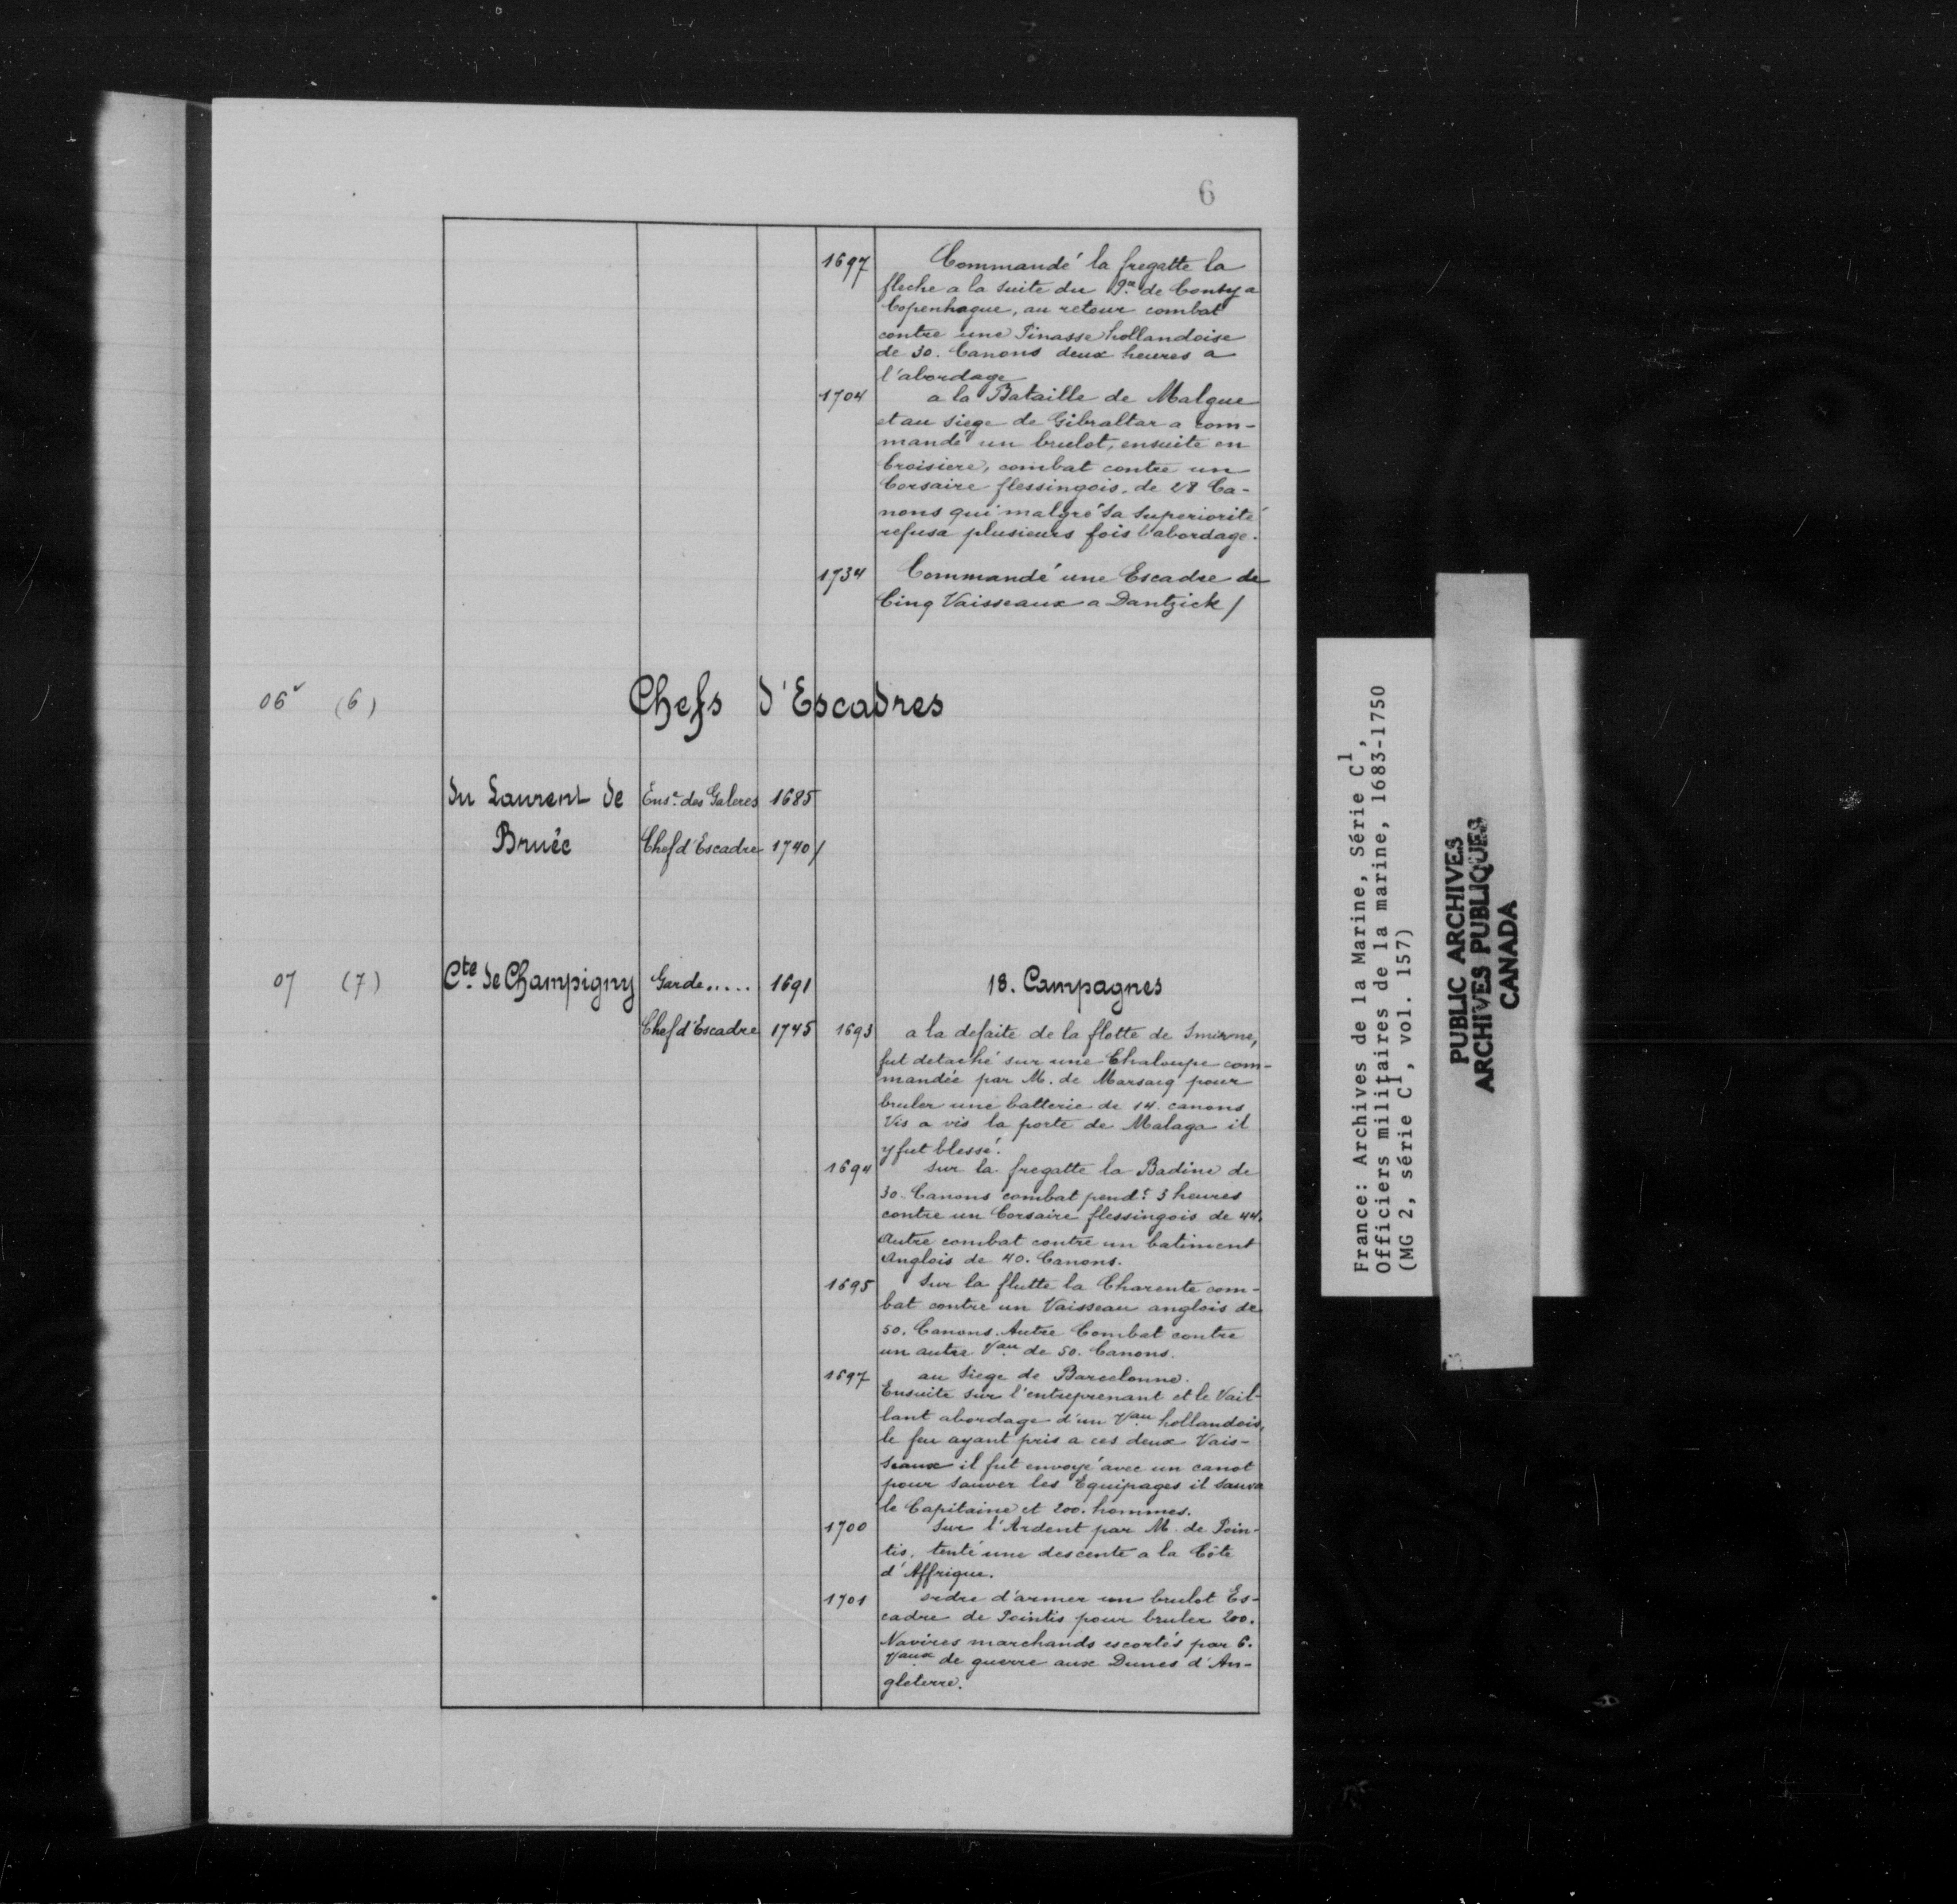 6
1697 Commandé la fregatte la
fleche a la suite du Pce de Conty a
Copenhague, au retour combat
contre une Pinasse hollandoise
de 30. Canons deux heures a
l'abordage
1704 a la Bataille de Malgue
et au siege de Gibraltar a com-
mandé un brulot, ensuite en
Croisiere, combat contre un
Corsaire flessingois, de 28 Ca-
nons qui malgré sa superiorité
refusa plusieurs fois l'abordage.
1734 Commandé une Escadre de
Cinq Vaisseaux a Dantzick /
06v (6) Chefs d'Escadres
du Laurent de Ense. des Galeres 1685
Bruée Chef d'Escadre 1740 /
07 (7) Cte. de Champigny Garde..... 1691 18. Campagnes
Chef d'Escadre 1745 1693 a la defaite de la flotte de Smirne,
fut detaché sur une Chaloupe com-
mandée par M. de Marsacq pour
bruler une batterie de 14. canons
Vis a vis la porte de Malaga il
y fut blessé.
1694 sur la fregatte la Badine de
30. Canons combat pendt. 3 heures
contre un Corsaire flessingois de 44.
Autre combat contre un batiment
Anglois de 40. Canons.
1695 sur la flutte la Charente com-
bat contre un Vaisseau anglois de
50. Canons. Autre Combat contre
un autre Vau de 50. Canons.
1697 au Siege de Barcelonne.
Ensuite sur l'entreprenant et le Vail-
lant abordage d'un Vau hollandois,
le feu ayant pris a ces deux Vais-
seaux il fut envoyé avec un canot
pour sauver les Equipages il sauva
le Capitaine et 200. hommes.
1700 sur l'Ardent par M. de Poin-
tis, tenté une descente a la Côte
d'Affrique.
1701 ordre d'armer un brulot Es-
cadre de Pointis pour bruler 200.
Navires marchands escortés par 6.
Vaux de guerre aux Dunes d'An-
gleterre.
France: Archives de la Marine, Série C1,
Officiers militaires de la marine, 1683-1750
(MG 2, série C1, vol. 157)
PUBLIC ARCHIVES
ARCHIVES PUBLIQUES
CANADA